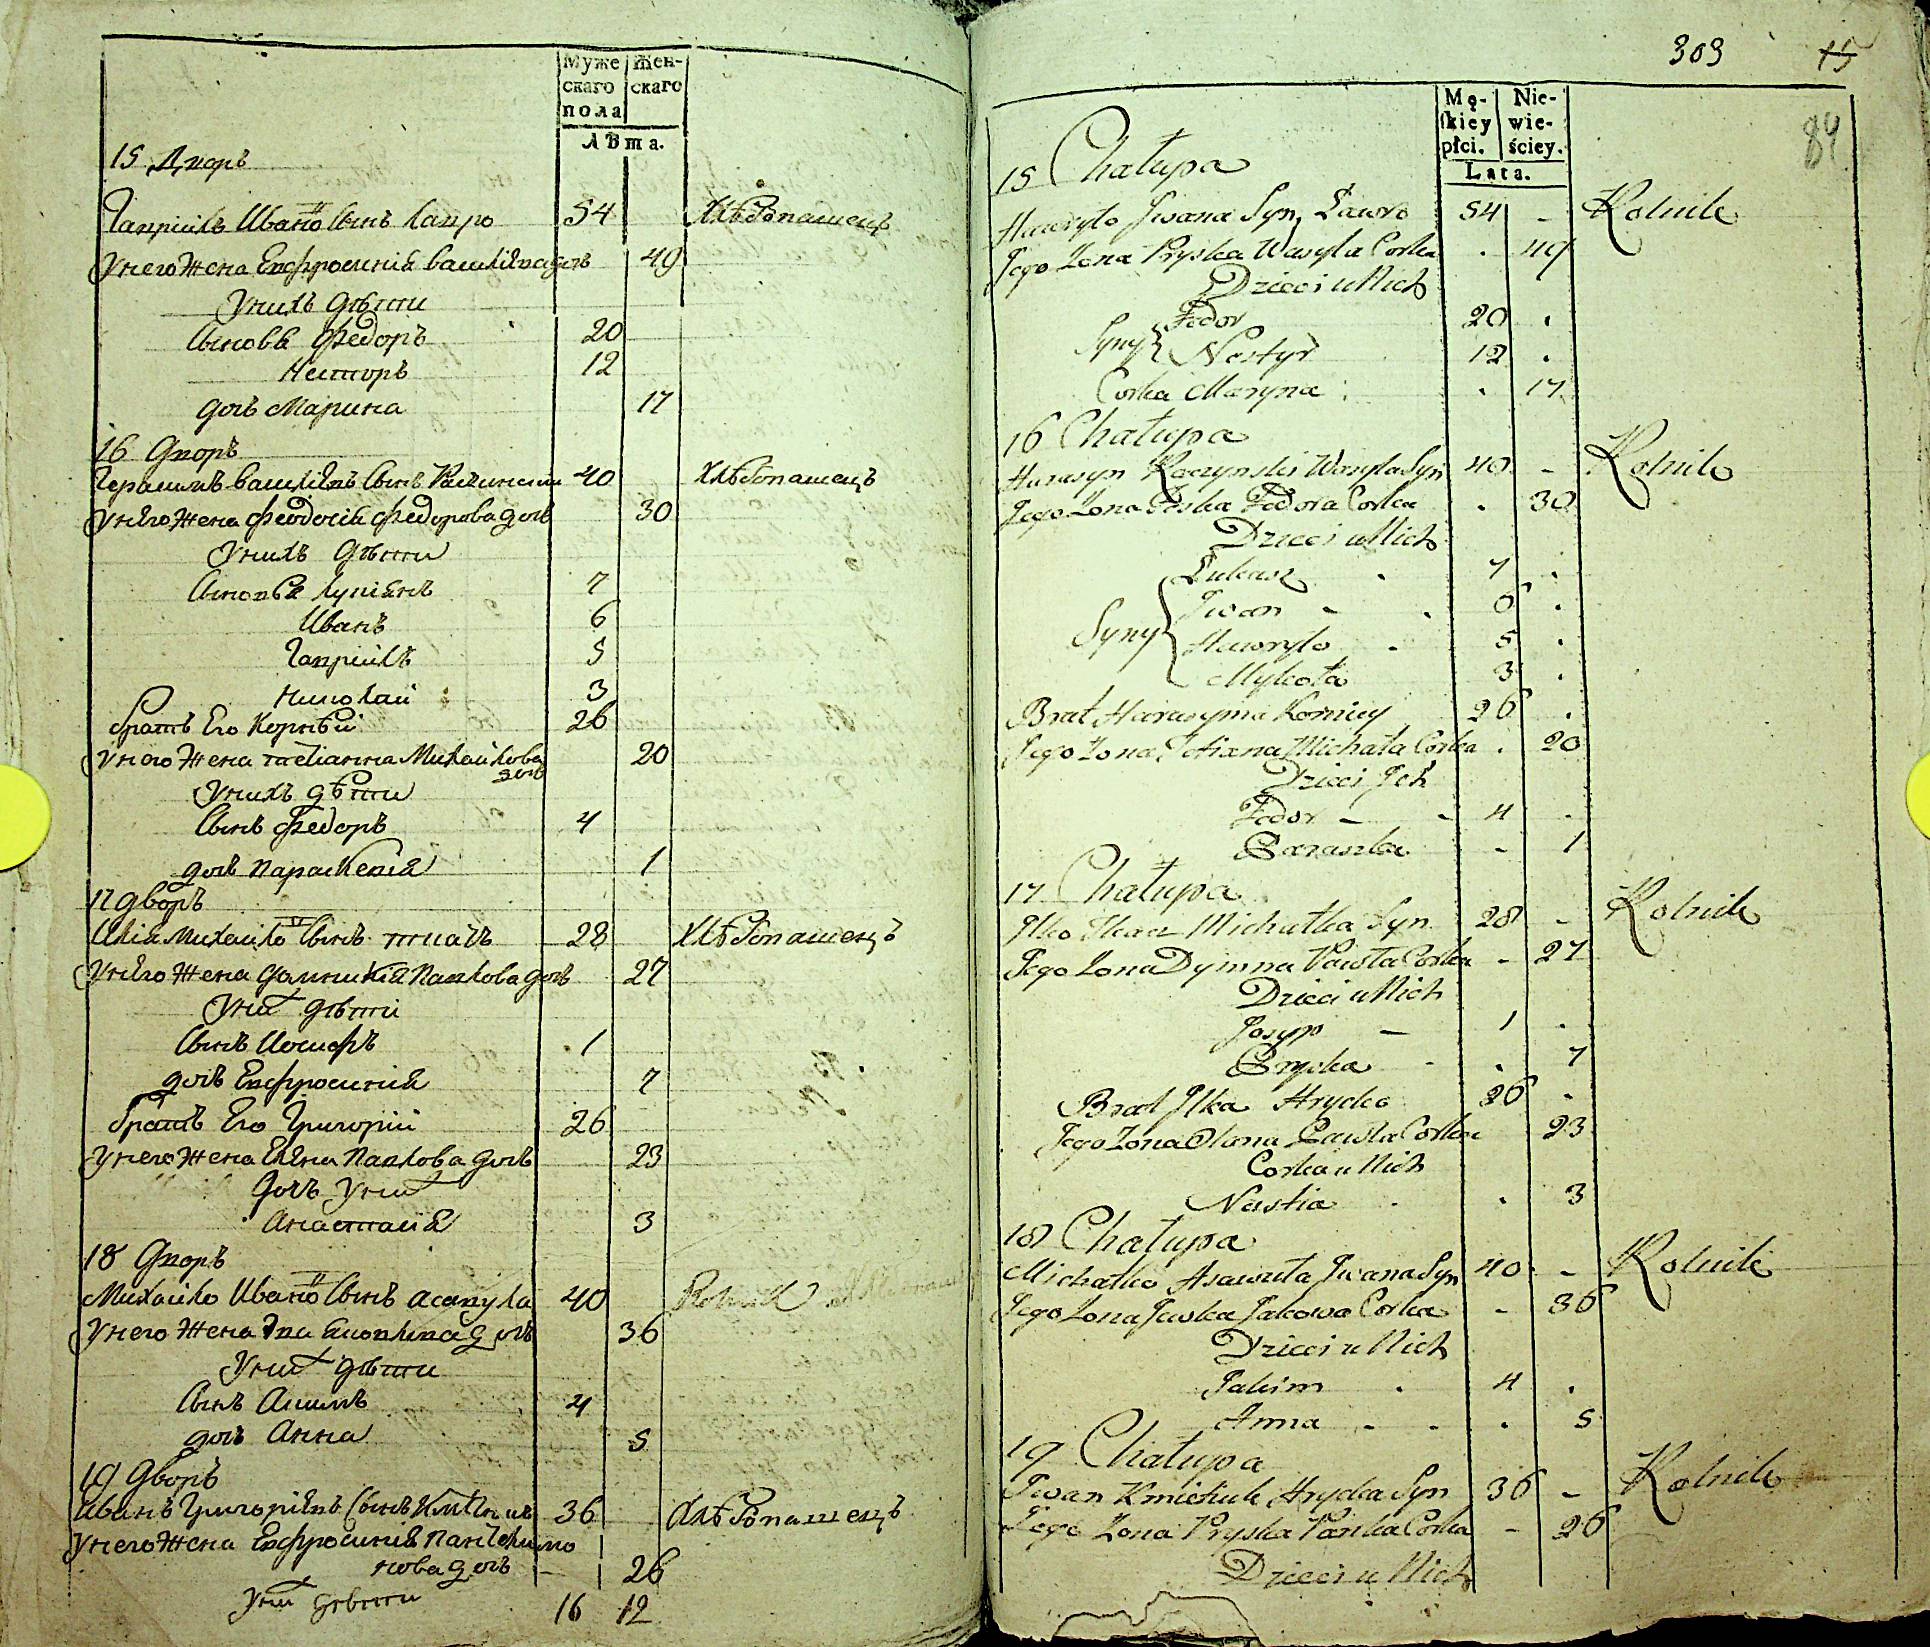 Муже
скаго
пола
Жен-
скаго
Лѣта.
15 Дворъ
Гавріилъ Ивановъ сынъ Лавро 54 Хлѣбопашецъ
У него жена Евфросинія Василіева дочь 49
У нихъ дѣти
Сыновья Федоръ 20
Несторъ 12
дочь Марина 17
16 Дворъ
Герасимъ Василіевъ сынъ Рачинскій 40 Хлѣбопашецъ
У него жена Феодосія Федорова дочь 30
У нихъ дѣти
Сыновья Лукіянъ 7
Иванъ 6
Гавріилъ 5
Николай 3
братъ Его Корнѣй 26
У него жена Тетіанна Михайлова
дочь 20
У нихъ дѣти
Сынъ Федоръ 4
дочь Параскевія 1
17 дворъ
Илія Михайловъ сынъ ткачъ 28 Хлѣбопашецъ
У него жена Домникія Павлова дочь 27
У нихъ дѣти
Сынъ Иосифъ 1
дочь Евфросинія 7
братъ Его Григорій 26
У него жена Елена Павлова дочь 23
дочь у нихъ
Анастасія 3
18 Дворъ
Михайло Ивановъ сынъ Асавула 40 Rolnik
У него жена Эва Яковлева дочь 36
У нихъ дѣти
Сынъ Акимъ 4
дочь Анна 5
19 Дворъ
Иванъ Григоріевъ сынъ 36 Хлѣбопашецъ
У него жена Евфросинія Пантелимо
нова дочь 26
У нихъ дѣти 16 12
303 15
84
Mę-
skiey
płci.
Nie-
wie-
ściey.
Lata.
15 Chałupa
Hawryło Jwana Syn Ławro 54 - Rolnik
Jego Zona Pryska Wasyla Corka . 49
Dzieci u Nich
Fedor 20 .
Syny { Nestyr 12 .
Corka Maryna . 17
16 Chałupa
Harasym Raczynski Wasyla Syn 40 - Rolnik
Jego Zona Feska Fedora Corka . 30
Dzieci u Nich
Łukasz 7 .
Jwan - 6 .
Syny { Hawryło 5 .
Mykoła 3 .
Brat Harasyma Korniey 26 .
Jego Zona Tetiana Michała Corka . 20
Dzieci Jch
Fedor - 4 .
Paraska - 1
17 Chałupa
Jlko Tkacz Michałka Syn 28 - Rolnik
Jego Zona Dymna Pawła Corka - 27
Dzieci u Nich
Josyp - 1 .
Pryska . 7
Brat Jlka Hrycko 26 .
Jego Zona Olena Pawła Corka 23
Corka u Nich
Nastia . 3
18 Chałupa
Michałko Asawuła Jwana Syn 40 - Rolnik
Jego Zona Jewka Jakowa Corka - 36
Dzieci u Nich
Jakim . 4 .
Anna - - . 5
19 Chałupa
Jwan Kmietiuk Hrycka Syn 36 - Rolnik
Jego Zona Pryska Pańka Corka - 26
Dzieci u Nich